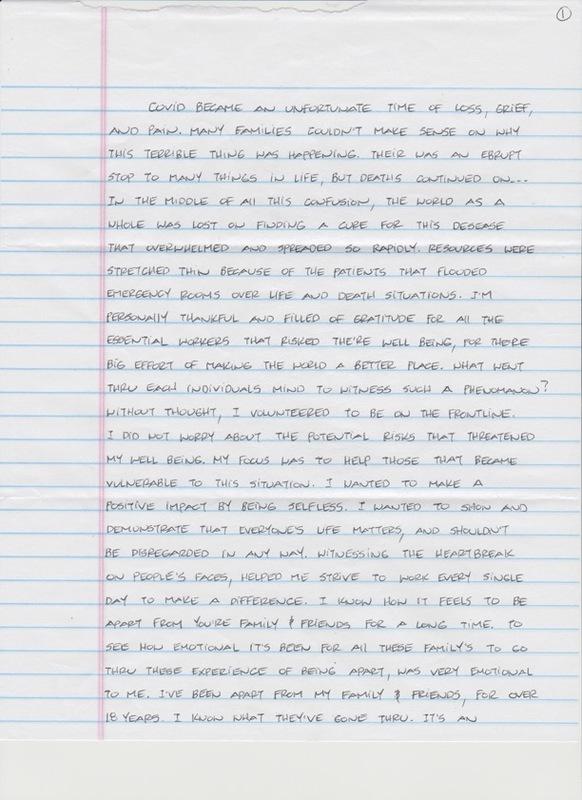 1
COVID BECAME AN UNFORTUNATE TIME OF LOSS, GRIEF,
AND PAIN. MANY FAMILIES COULDN'T MAKE SENSE ON WHY
THIS TERRIBLE THING WAS HAPPENING. THEIR WAS AN EBRUPT
STOP TO MANY THINGS IN LIFE, BUT DEATHS CONTINUED ON...
IN THE MIDDLE OF ALL THIS CONFUSION, THE WORLD AS A
WHOLE WAS LOST ON FINDING A CURE FOR THIS DESEASE
THAT OVERWHELMED AND SPREADED SO RAPIDLY. RESOURCES WERE
STRETCHED THIN BECAUSE OF THE PATIENTS THAT FLOUDED
EMERGENCY ROOMS OVER LIFE AND DEATH SITUATIONS. I'M
PERSONALLY THANKFUL AND FILLED OF GRATITUDE FOR ALL THE
ESSENTIAL WORKERS THAT RISKED THE'RE WELL BEING, FOR THE'RE
BIG EFFORT OF MAKING THE WORLD A BETTER PLACE. WHAT WENT
THRU EACH INDIVIDUALS MIND TO WITNESS SUCH A PHENOMANON?
WITHOUT THOUGHT, I VOLUNTEERED TO BE ON THE FRONTLINE.
I DID NOT WORRY ABOUT THE POTENTIAL RISKS THAT THREATENED
MY WELL BEING. MY FOCUS WAS TO HELP THOSE THAT BECAME
VULNERABLE TO THIS SITUATION. I WANTED TO MAKE A
POSITIVE IMPACT BY BEING SELFLESS. I WANTED TO SHOW AND
DEMONSTRATE THAT EVERYONE'S LIFE MATTERS, AND SHOULDN'T
BE DISREGARDED IN ANY WAY. WITNESSING THE HEARTBREAK
ON PEOPLE'S FACES, HELPED ME STRIVE TO WORK EVERY SINGLE
DAY TO MAKE A DIFFERENCE. I KNOW HOW IT FEELS TO BE
APART FROM YOU'RE FAMILY & FRIENDS FOR A LONG TIME. TO
SEE HOW EMOTIONAL IT'S BEEN FOR ALL THESE FAMILY'S TO GO
THRU THESE EXPERIENCE OF BEING APART, WAS VERY EMOTIONAL
TO ME. I'VE BEEN APART FROM MY FAMILY & FRIENDS, FOR OVER
18 YEARS. I KNOW WHAT THEY'VE GONE THRU. IT'S AN